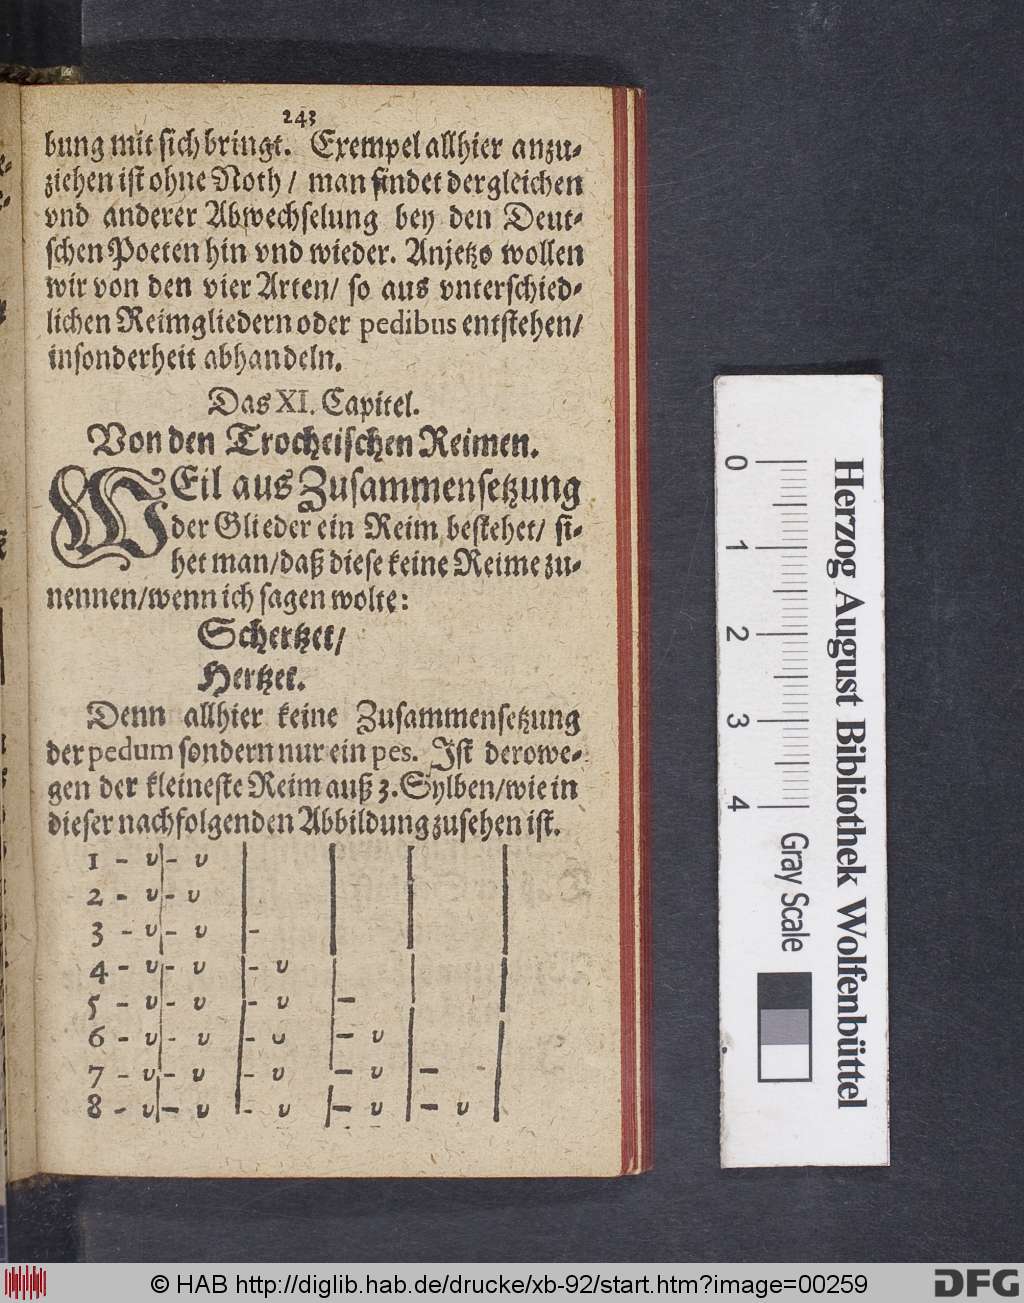 243
bung mit sich bringt. Exempel allhier anzu-
ziehen ist ohne Noth / man findet dergleichen
vnd anderer Abwechselung bey den Deut-
schen Poeten hin vnd wieder. Anjetzo wollen
wir von den vier Arten / so aus vnterschied-
lichen Reimgliedern oder pedibus entstehen /
insonderheit abhandeln.
Das XI. Capitel.
Von den Trocheischen Reimen.
WEil aus Zusammensetzung
der Glieder ein Reim bestehet / si-
het man / daß diese keine Reime zu-
nennen / wenn ich sagen wolte:
Schertzet /
Hertzet.
Denn allhier keine Zusammensetzung
der pedum sondern nur ein pes. Ist derowe-
gen der kleineste Reim auß 3. Sylben / wie in
dieser nachfolgenden Abbildung zusehen ist.
1 - υ | - υ | | | |
2 - υ | - υ | | | |
3 - υ | - υ | - | | |
4 - υ | - υ | - υ | | |
5 - υ | - υ | - υ | - | |
6 - υ | - υ | - υ | - υ | |
7 - υ | - υ | - υ | - υ | - |
8 - υ | - υ | - υ | - υ | - υ |
Herzog August Bibliothek Wolfenbüttel
0 1 2 3 4
Gray Scale
© HAB http://diglib.hab.de/drucke/xb-92/start.htm?image=00259
DFG